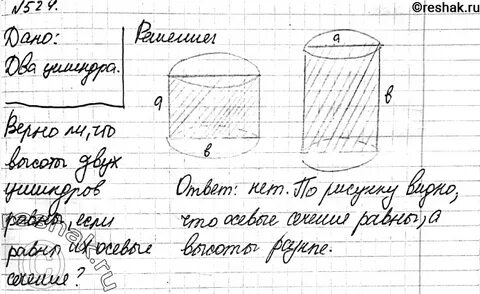 ©reshak.ru
№524.
Дано:
Два цилиндра.
Решение:
a
в
a
в
Верно ли, что
высоты двух
цилиндров
равны, если
равны их осевые
сечение?
Ответ: нет. По рисунку видно,
что осевые сечение равны, а
высоты разные.
reshak.ru